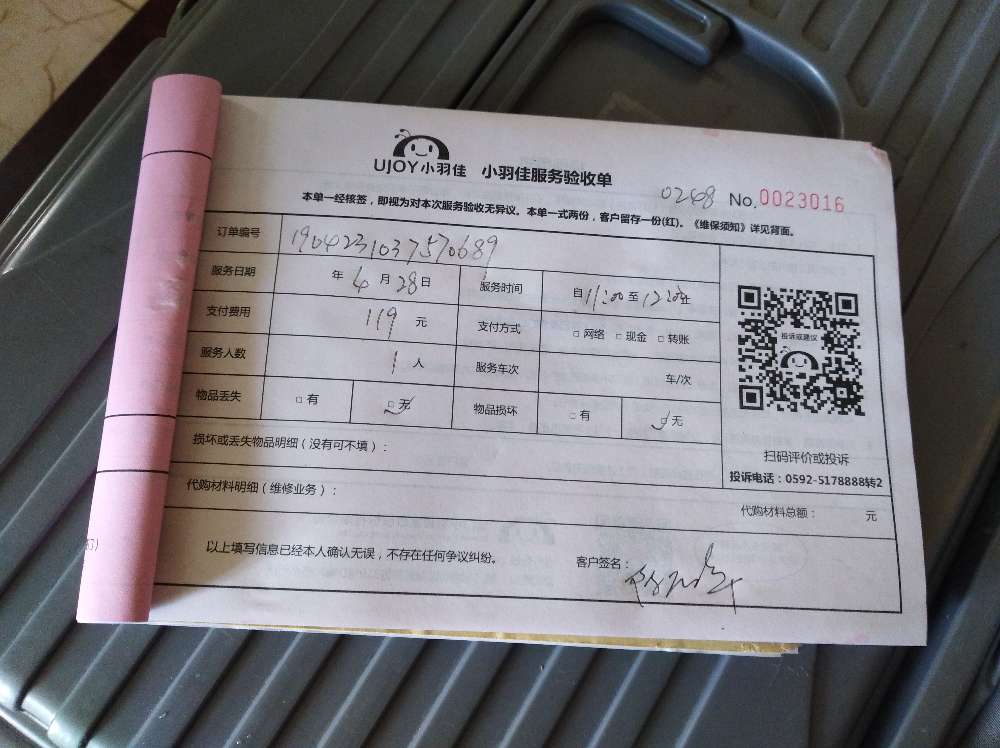 UJOY小羽佳 小羽佳服务验收单
0248 No.0023016
本单一经核签，即视为对本次服务验收无异议。本单一式两份，客户留存一份(红)。《维保须知》详见背面。
订单编号 1904231037570689
服务日期 年 4 月 28 日 服务时间 自 11:00 至 12:20 止
支付费用 119 元 支付方式 □ 网络 □ 现金 □ 转账
服务人数 1 人 服务车次 车/次
物品丢失 □ 有 □ 无 物品损坏 □ 有 □ 无
损坏或丢失物品明细（没有可不填）：
代购材料明细（维修业务）：
代购材料总额： 元
以上填写信息已经本人确认无误，不存在任何争议纠纷。 客户签名：
投诉或建议
扫码评价或投诉
投诉电话：0592-5178888转2